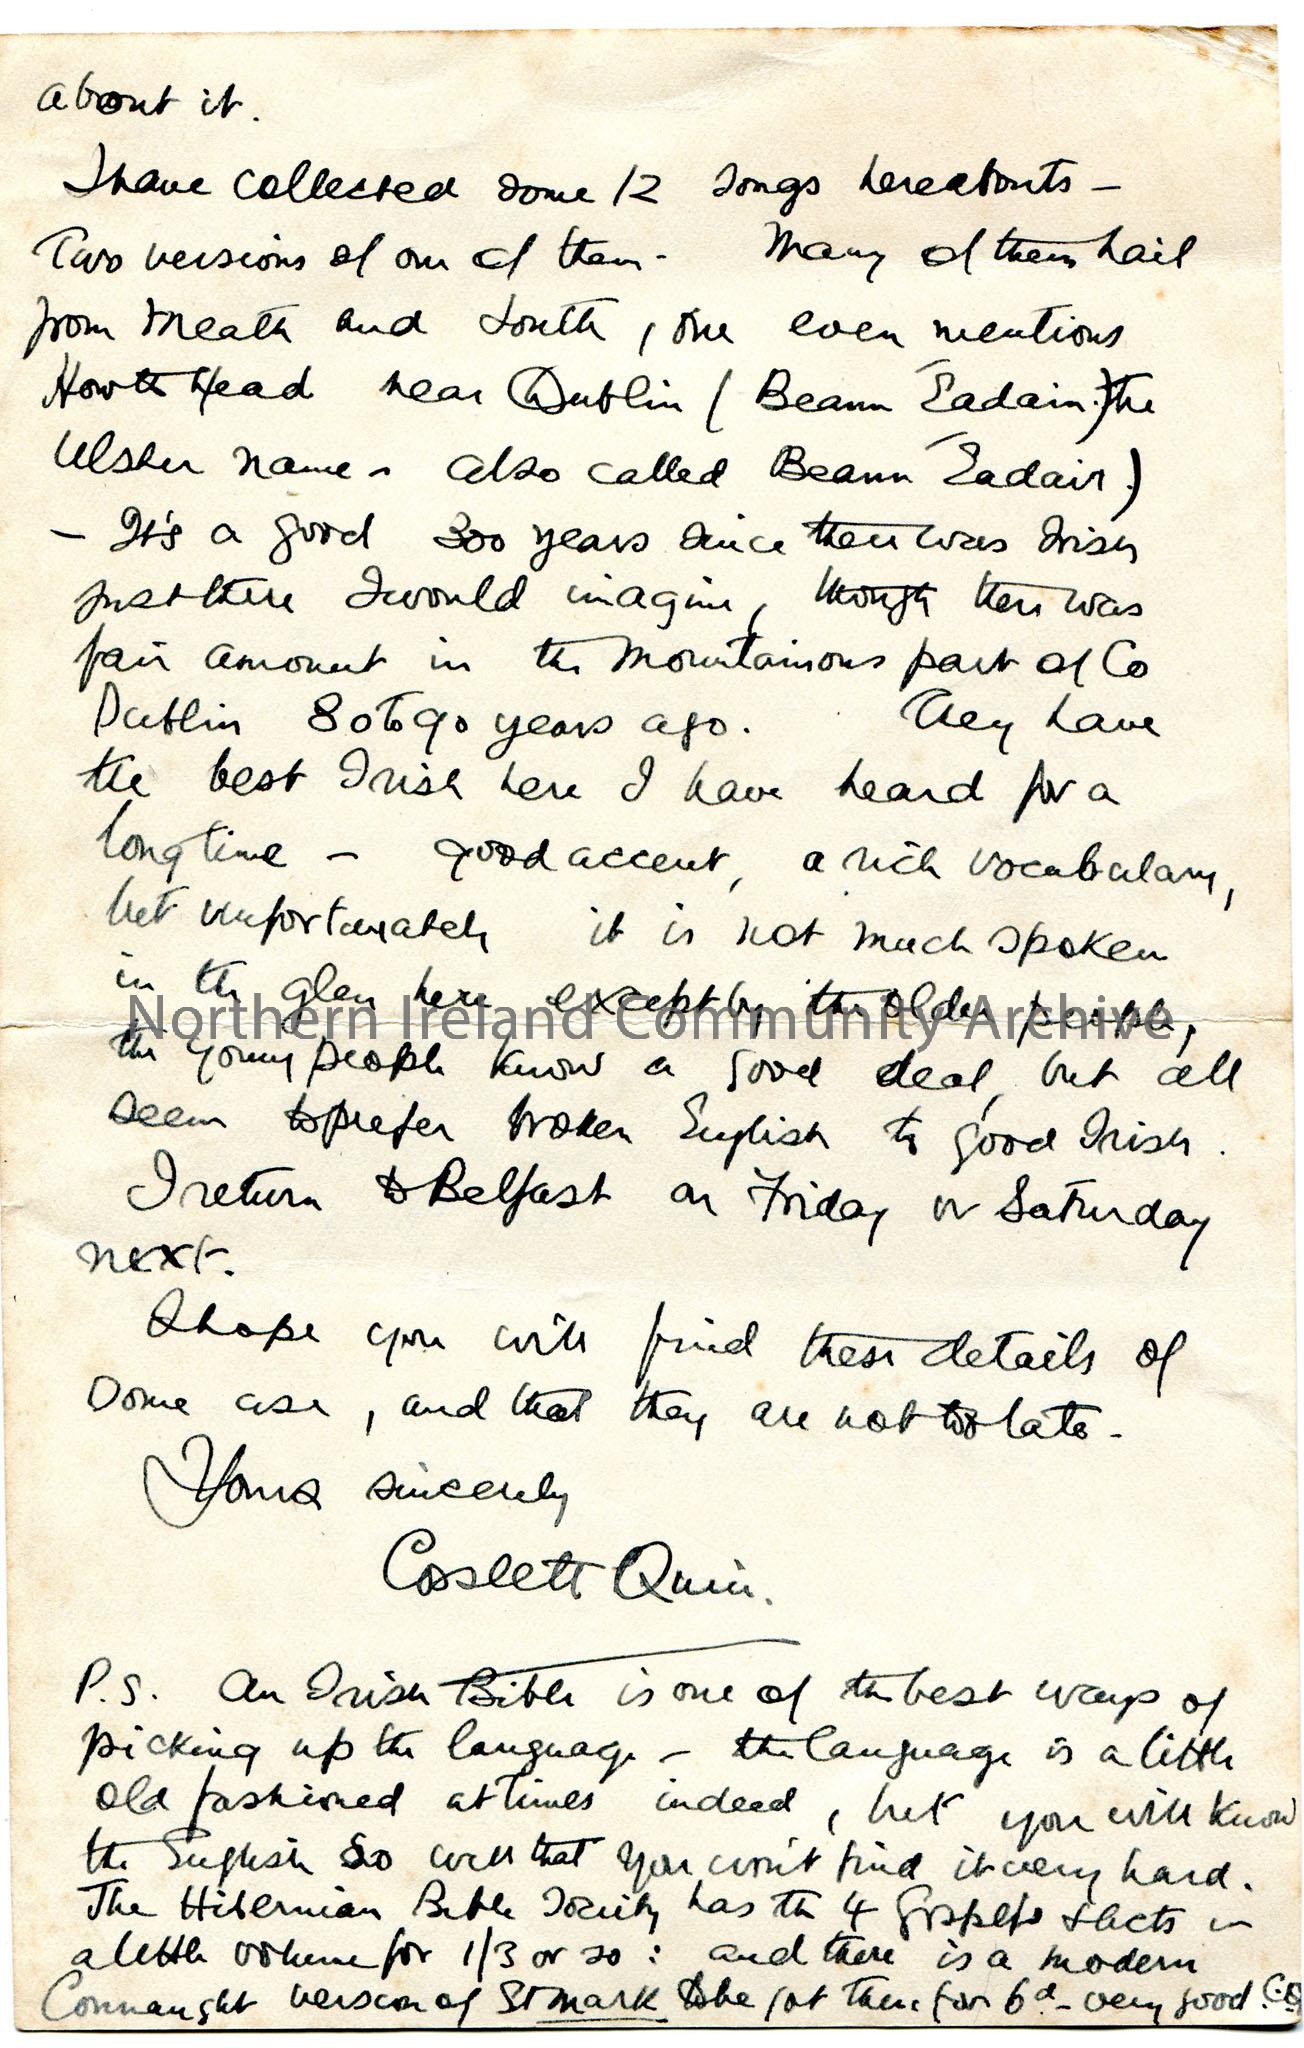 about it.
I have collected some 12 songs hereabouts –
Two versions of one of them. Many of them hail
from Meath and Louth, one even mentions
Howth Head near Dublin (Beann Éadain) the
Ulster name - also called Beann Éadair)
– It's a good 300 years since there was Irish
just there I would imagine, though there was
fair amount in the mountainous part of Co
Dublin 80 to 90 years ago. They have
the best Irish here I have heard for a
long time – good accent, a rich vocabulary,
but unfortunately it is not much spoken
in the glen here except by the older people,
Northern Ireland Community Archive
the young people know a good deal, but all
seem to prefer broken English to good Irish.
I return to Belfast on Friday or Saturday
next.
I hope you will find these details of
some use, and that they are not too late.
Yours sincerely
Coslett Quin.
P.S. An Irish Bible is one of the best ways of
picking up the language – the language is a little
old fashioned at times indeed, but you will know
the English so well that you won't find it very hard.
The Hibernian Bible Society has the 4 Gospels & Acts in
a little volume for 1/3 or so: and there is a modern
Connaught version of St Mark to be got there for 6d – very good. C.Q.